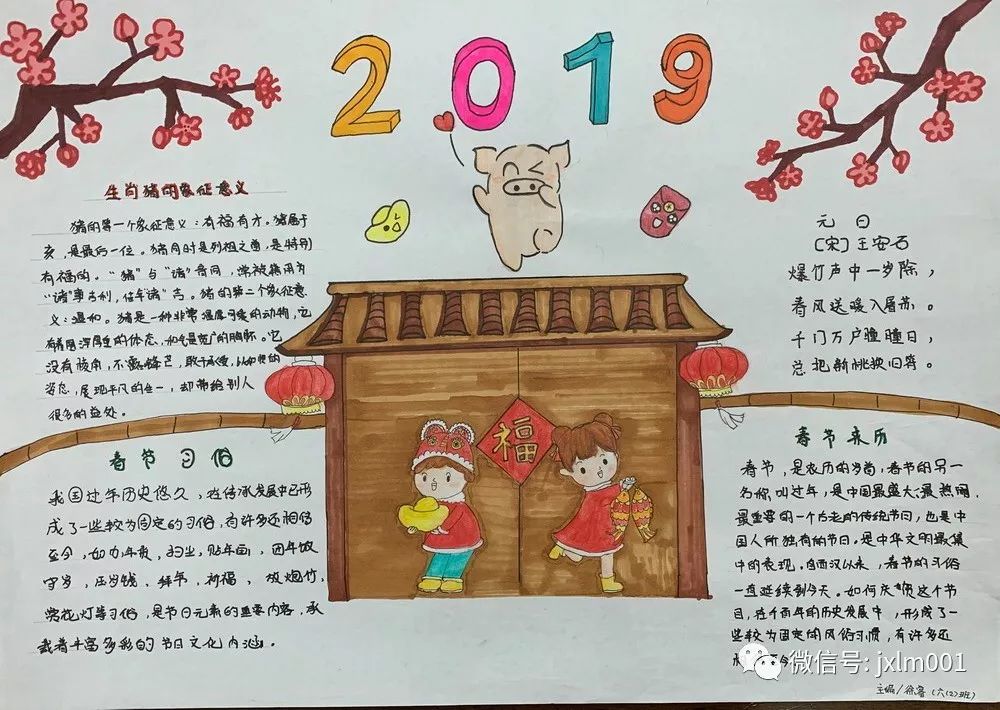 2019
生肖猪的象征意义
猪的第一个象征意义:有福有才。猪属于
亥,是最后一位。猪同时是列祖之首,是特别
有福的。“猪”与“诸”音同,常被推用为
“诸”事吉利,住年“诸”吉。猪的第二个象征意
义:温和。猪是一种非常温厚可爱的动物,它
有着浑厚的体态,如它宽广的胸怀。它
没有棱角,不露锋芒,敢于承受,以如此的
姿态,展现平凡的生一,却带给别人
很多的益处。
春节习俗
我国过年历史悠久,在传承发展中已形
成了一些较为固定的习俗,有许多还相传
至今,如办年货,扫尘,贴年画,团年饭
守岁,压岁钱、拜年,祈福,放烟竹,
赏花灯等习俗,是节日元素的重要内容,承
载着丰富多彩的节日文化内涵。
福
元日
〔宋〕王安石
爆竹声中一岁除,
春风送暖入屠苏。
千门万户瞳瞳日,
总把新桃换旧符。
春节来历
春节,是农历的岁首,春节的另一
名你叫过年,是中国最盛大、最热闹、
最重要的一个古老的传统节日,也是中
国人所独有的节日,是中华文明最集
中的表现。自西汉以来,春节的习俗
一直延续到今天。如何庆贺这个节
日,在千百年的历史发展中,形成了一
些较为固定的风俗习惯,有许多还
微信号: jxlm001
主编/徐鲁(六(2)班)